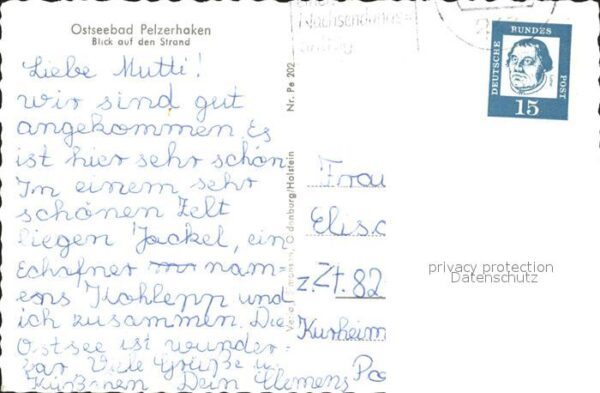 Ostseebad Pelzerhaken
Blick auf den Strand
Nachsendungs-
Liebe Mutti!
wir sind gut
angekommen. Es
ist hier sehr schön.
In einem sehr
schönen Zelt
liegen Jackel, ein
nam-
ens Kohlepp und
ich zusammen. Die
Ostsee ist wunder-
bar. Viele Grüße u.
Dein Clemens
Nr. Pe 202
Oldenburg/Holstein
DEUTSCHE BUNDES POST
15
Frau
Elis
z. Zt. 82
Kurheim
privacy protection
Datenschutz